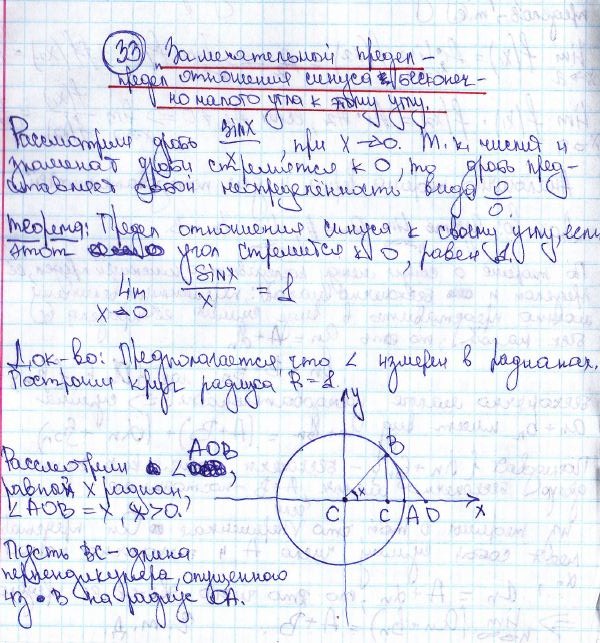 33 Замечательный предел –
предел отношения синуса бесконеч-
но малого угла к этому углу.
Рассмотрим дробь sinx/x, при x→0. Т.к. числит и
знаменат дроби стремятся к 0, то дробь пред-
ставляет собой неопределённость вида 0/0.
Теорема: Предел отношения синуса к своему углу, если
этот угол стремится к 0, равен 1.
lim sinx/x = 1
x→0
Док-во: Предполагается, что ∠ измерен в радианах.
Построим круг радиуса R=1.
y
B
C x C A D x
Рассмотрим ∠ AOB,
равный x радиан,
∠AOB = x, x>0.
Пусть BC – длина
перпендикуляра, опущенного
из B на радиус OA.